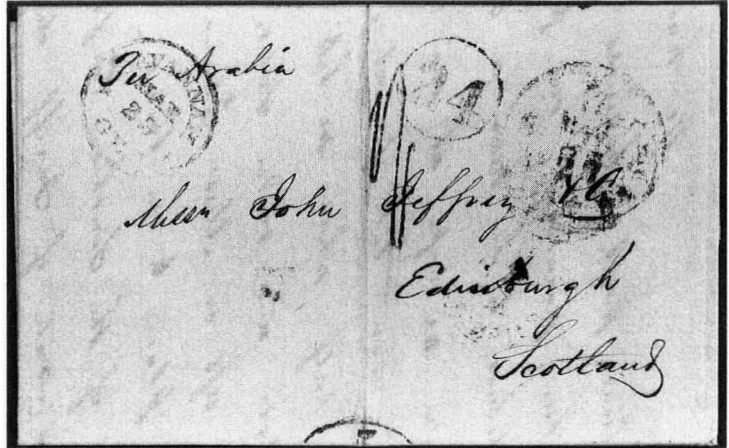 Per Arabia
SAVANNAH
MAR
23
24
Messrs John Jeffrey & Co
Edinburgh
Scotland